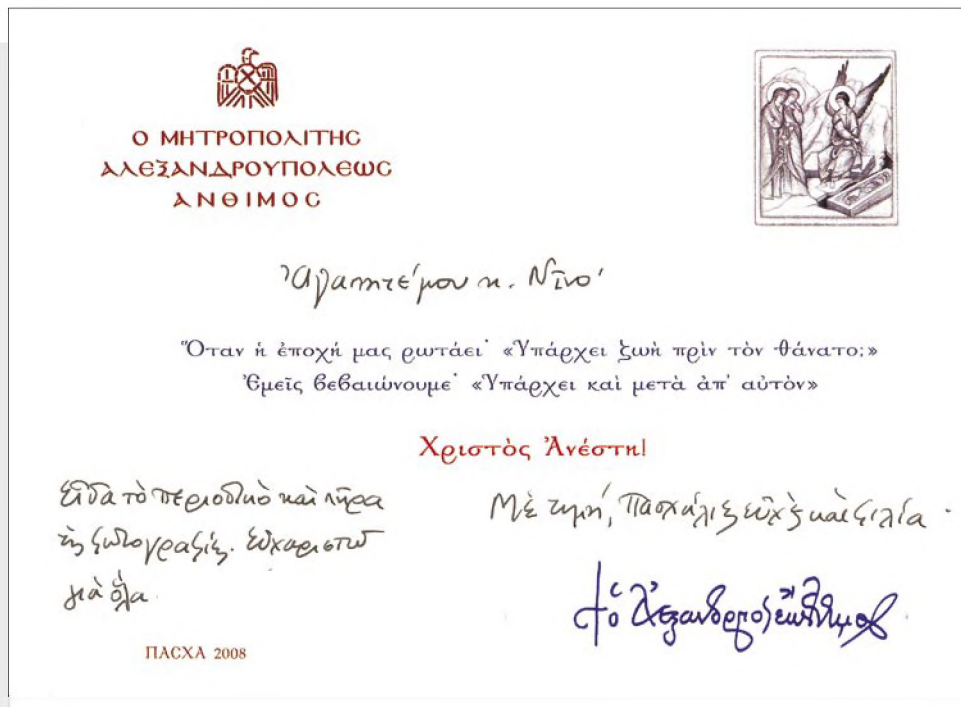 Ο ΜΗΤΡΟΠΟΛΙΤΗΣ
ΑΛΕΞΑΝΔΡΟΥΠΟΛΕΩΣ
ΑΝΘΙΜΟΣ
Ἀγαπητέ μου κ. Ντῖνο
Ὅταν ἡ ἐποχή μας ρωτάει· «Ὑπάρχει ζωὴ πρὶν τὸν θάνατο;»
Ἐμεῖς βεβαιώνουμε· «Ὑπάρχει καὶ μετὰ ἀπ' αὐτὸν»
Χριστὸς Ἀνέστη!
Εἶδα τὸ περιοδικὸ καὶ πῆρα
τὶς φωτογραφίες. Εὐχαριστῶ
γιὰ ὅλα.
Μὲ τιμή, Πασχάλιες εὐχὲς καὶ φιλία.
ΠΑΣΧΑ 2008